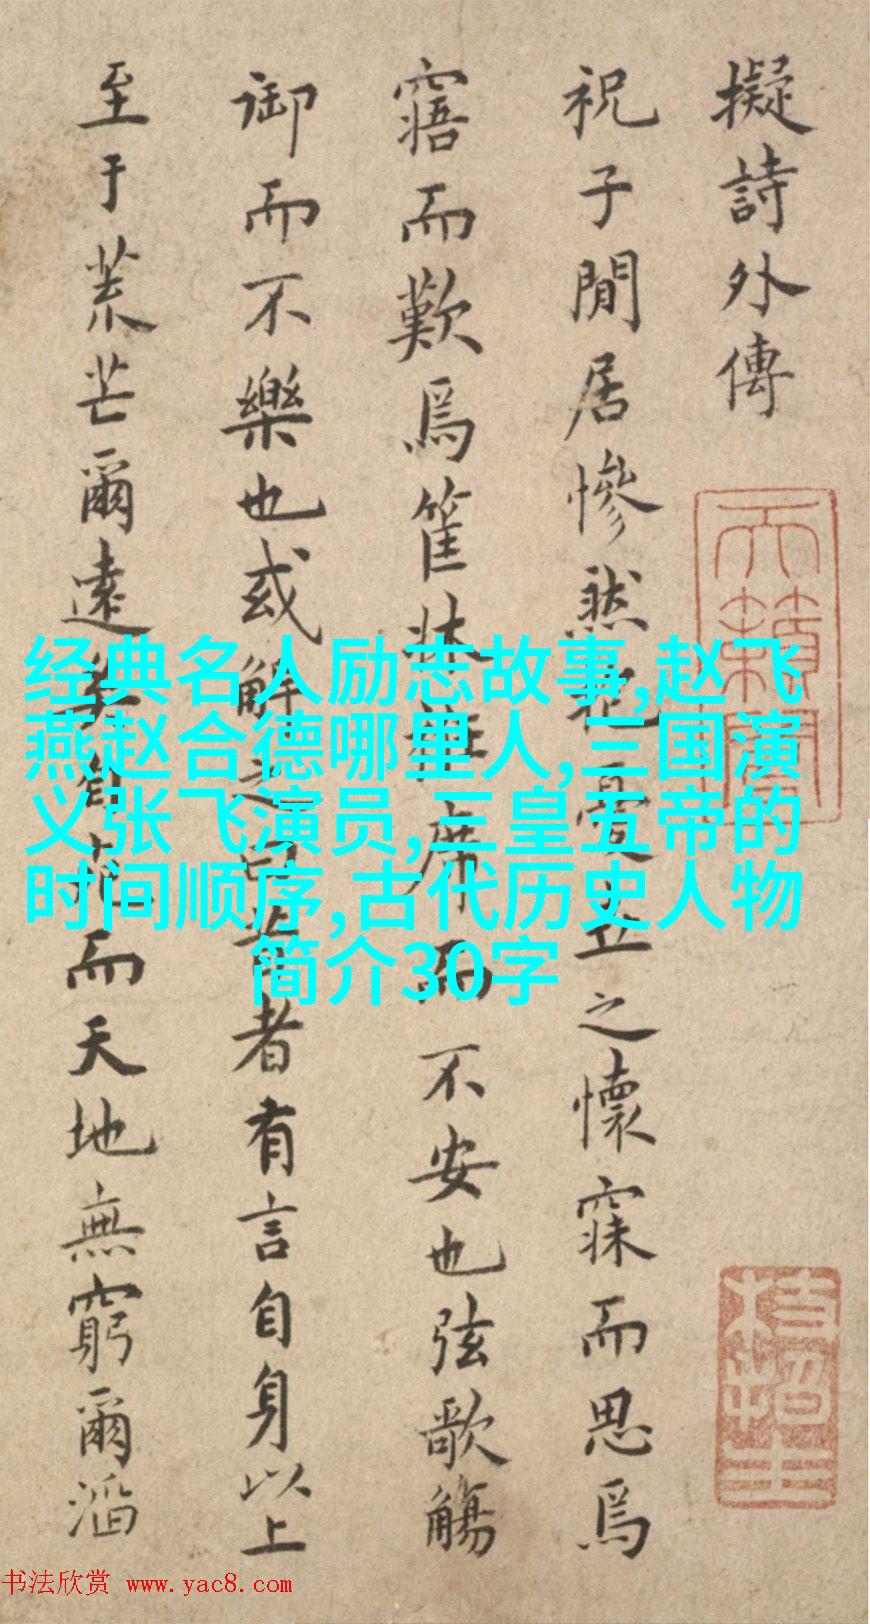 擬詩外傳
祝子閒居慘然抱憂立之懷寐而思焉
寤而歎焉筐牀衽席而不安也弦歌觴
御而不樂也或解之曰昔者有言自身以上
至于荒芒爾遠矣自死而天地無窮爾滔
天籟閣
枝指生
经典名人励志故事,赵飞
燕赵合德哪里人,三国演
义张飞演员,三皇五帝的
时间顺序,古代历史人物
简介30字
书法欣赏 www.yac8.com